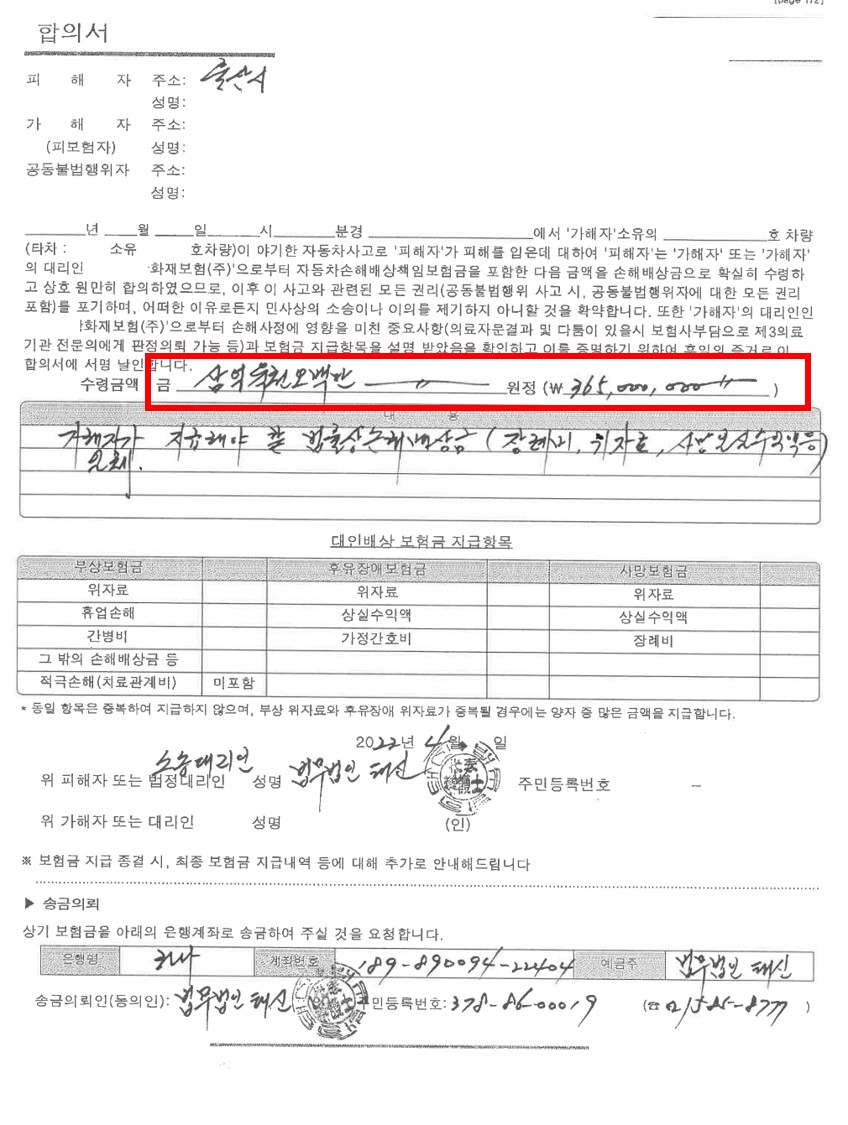 [page 1/2]
합의서
피 해 자 주소: 울산시
성명:
가 해 자 주소:
(피보험자) 성명:
공동불법행위자 주소:
성명:
______년 ____월 ____일 ____시 ____분경 ________에서 '가해자'소유의 ________호 차량
(타차 : 소유 호차량)이 야기한 자동차사고로 '피해자'가 피해를 입은데 대하여 '피해자'는 '가해자' 또는 '가해자'
의 대리인 화재보험(주)'으로부터 자동차손해배상책임보험금을 포함한 다음 금액을 손해배상금으로 확실히 수령하
고 상호 원만히 합의하였으므로, 이후 이 사고와 관련된 모든 권리(공동불법행위 사고 시, 공동불법행위자에 대한 모든 권리
포함)를 포기하며, 어떠한 이유로든지 민사상의 소송이나 이의를 제기하지 아니할 것을 확약합니다. 또한 '가해자'의 대리인인
화재보험(주)'으로부터 손해사정에 영향을 미친 중요사항(의료자문결과 및 다툼이 있을시 보험사부담으로 제3의료
기관 전문의에게 판정의뢰 가능 등)과 보험금 지급항목을 설명 받았음을 확인하고 이를 증명하기 위하여 후일의 증거로 이
합의서에 서명 날인합니다.
수령금액 금 삼억육천오백만 원정 (₩ 365,000,000 )
내 용
가해자가 지급해야 할 법률상손해배상금 (장례비, 위자료, 사망보실수익액등)
일체.
대인배상 보험금 지급항목
부상보험금 후유장애보험금 사망보험금
위자료 위자료 위자료
휴업손해 상실수익액 상실수익액
간병비 가정간호비 장례비
그 밖의 손해배상금 등
적극손해(치료관계비) 미포함
* 동일 항목은 중복하여 지급하지 않으며, 부상 위자료와 후유장애 위자료가 중복될 경우에는 양자 중 많은 금액을 지급합니다.
2022년 4월 일
소송대리인
위 피해자 또는 법정대리인 성명 법무법인 태신 주민등록번호 –
위 가해자 또는 대리인 성명 (인)
※ 보험금 지급 종결 시, 최종 보험금 지급내역 등에 대해 추가로 안내해드립니다
▶ 송금의뢰
상기 보험금을 아래의 은행계좌로 송금하여 주실 것을 요청합니다.
은행명 하나 계좌번호 189-890094-22404 예금주 법무법인 태신
송금의뢰인(동의인): 법무법인 태신 민등록번호: 378-86-00019 (☎ 02/585-8777 )